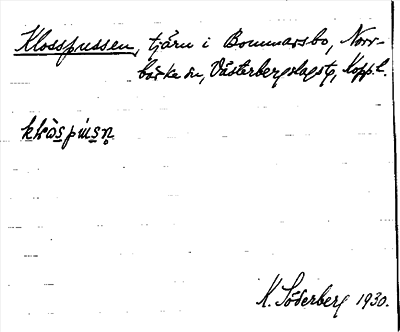 Klosspussen, tjärn i Bommarsbo, Norr-
bärke sn, Västerbergslags tg, Kopp. l.
K. Söderberg 1930.